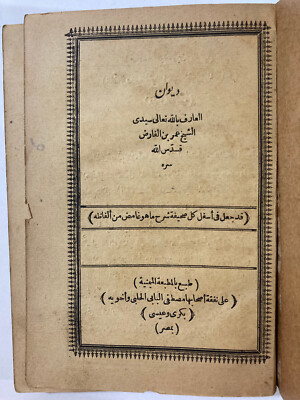 ديوان
العارف بالله تعالى سيدى
الشيخ عمر بن الفارض
قدس الله
سره
(قد جعل فى أسفل كل صحيفة شرح ما هو غامض من ألفاظه)
(طبع بالمطبعة الميمنية)
(على نفقة أصحابها مصطفى البابى الحلبى وأخويه)
(بكرى وعيسى)
(بمصر)